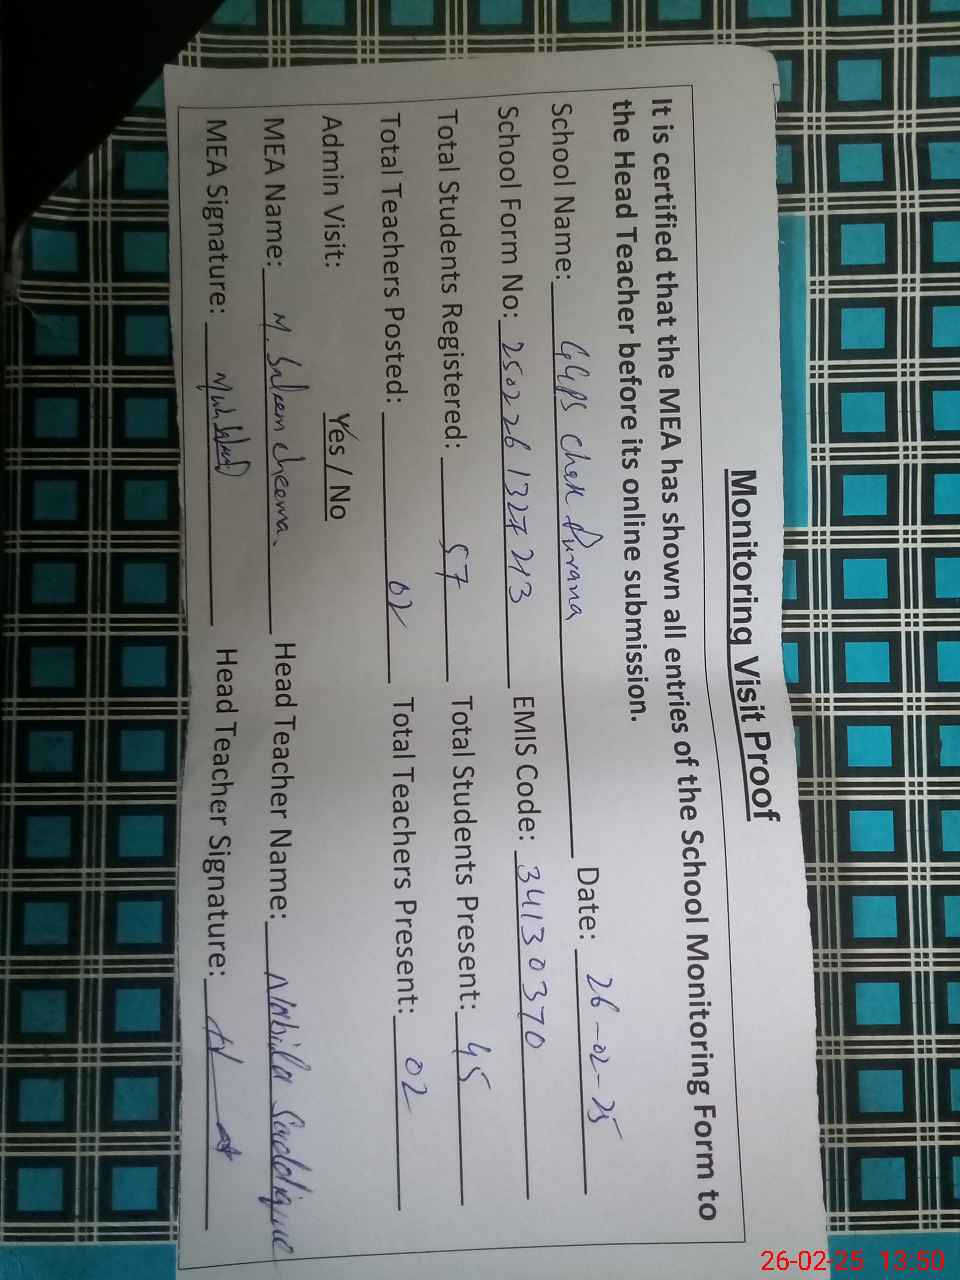 Monitoring Visit Proof
It is certified that the MEA has shown all entries of the School Monitoring Form to
the Head Teacher before its online submission.
School Name: GGPS Chak Purana Date: 26-02-25
School Form No: 2502261327213 EMIS Code: 34130370
Total Students Registered: 57 Total Students Present: 45
Total Teachers Posted: 02 Total Teachers Present: 02
Admin Visit: Yes / No
MEA Name: M. Saleem Cheema. Head Teacher Name: Nabila Saddique
MEA Signature: Head Teacher Signature:
26-02-25 13:50